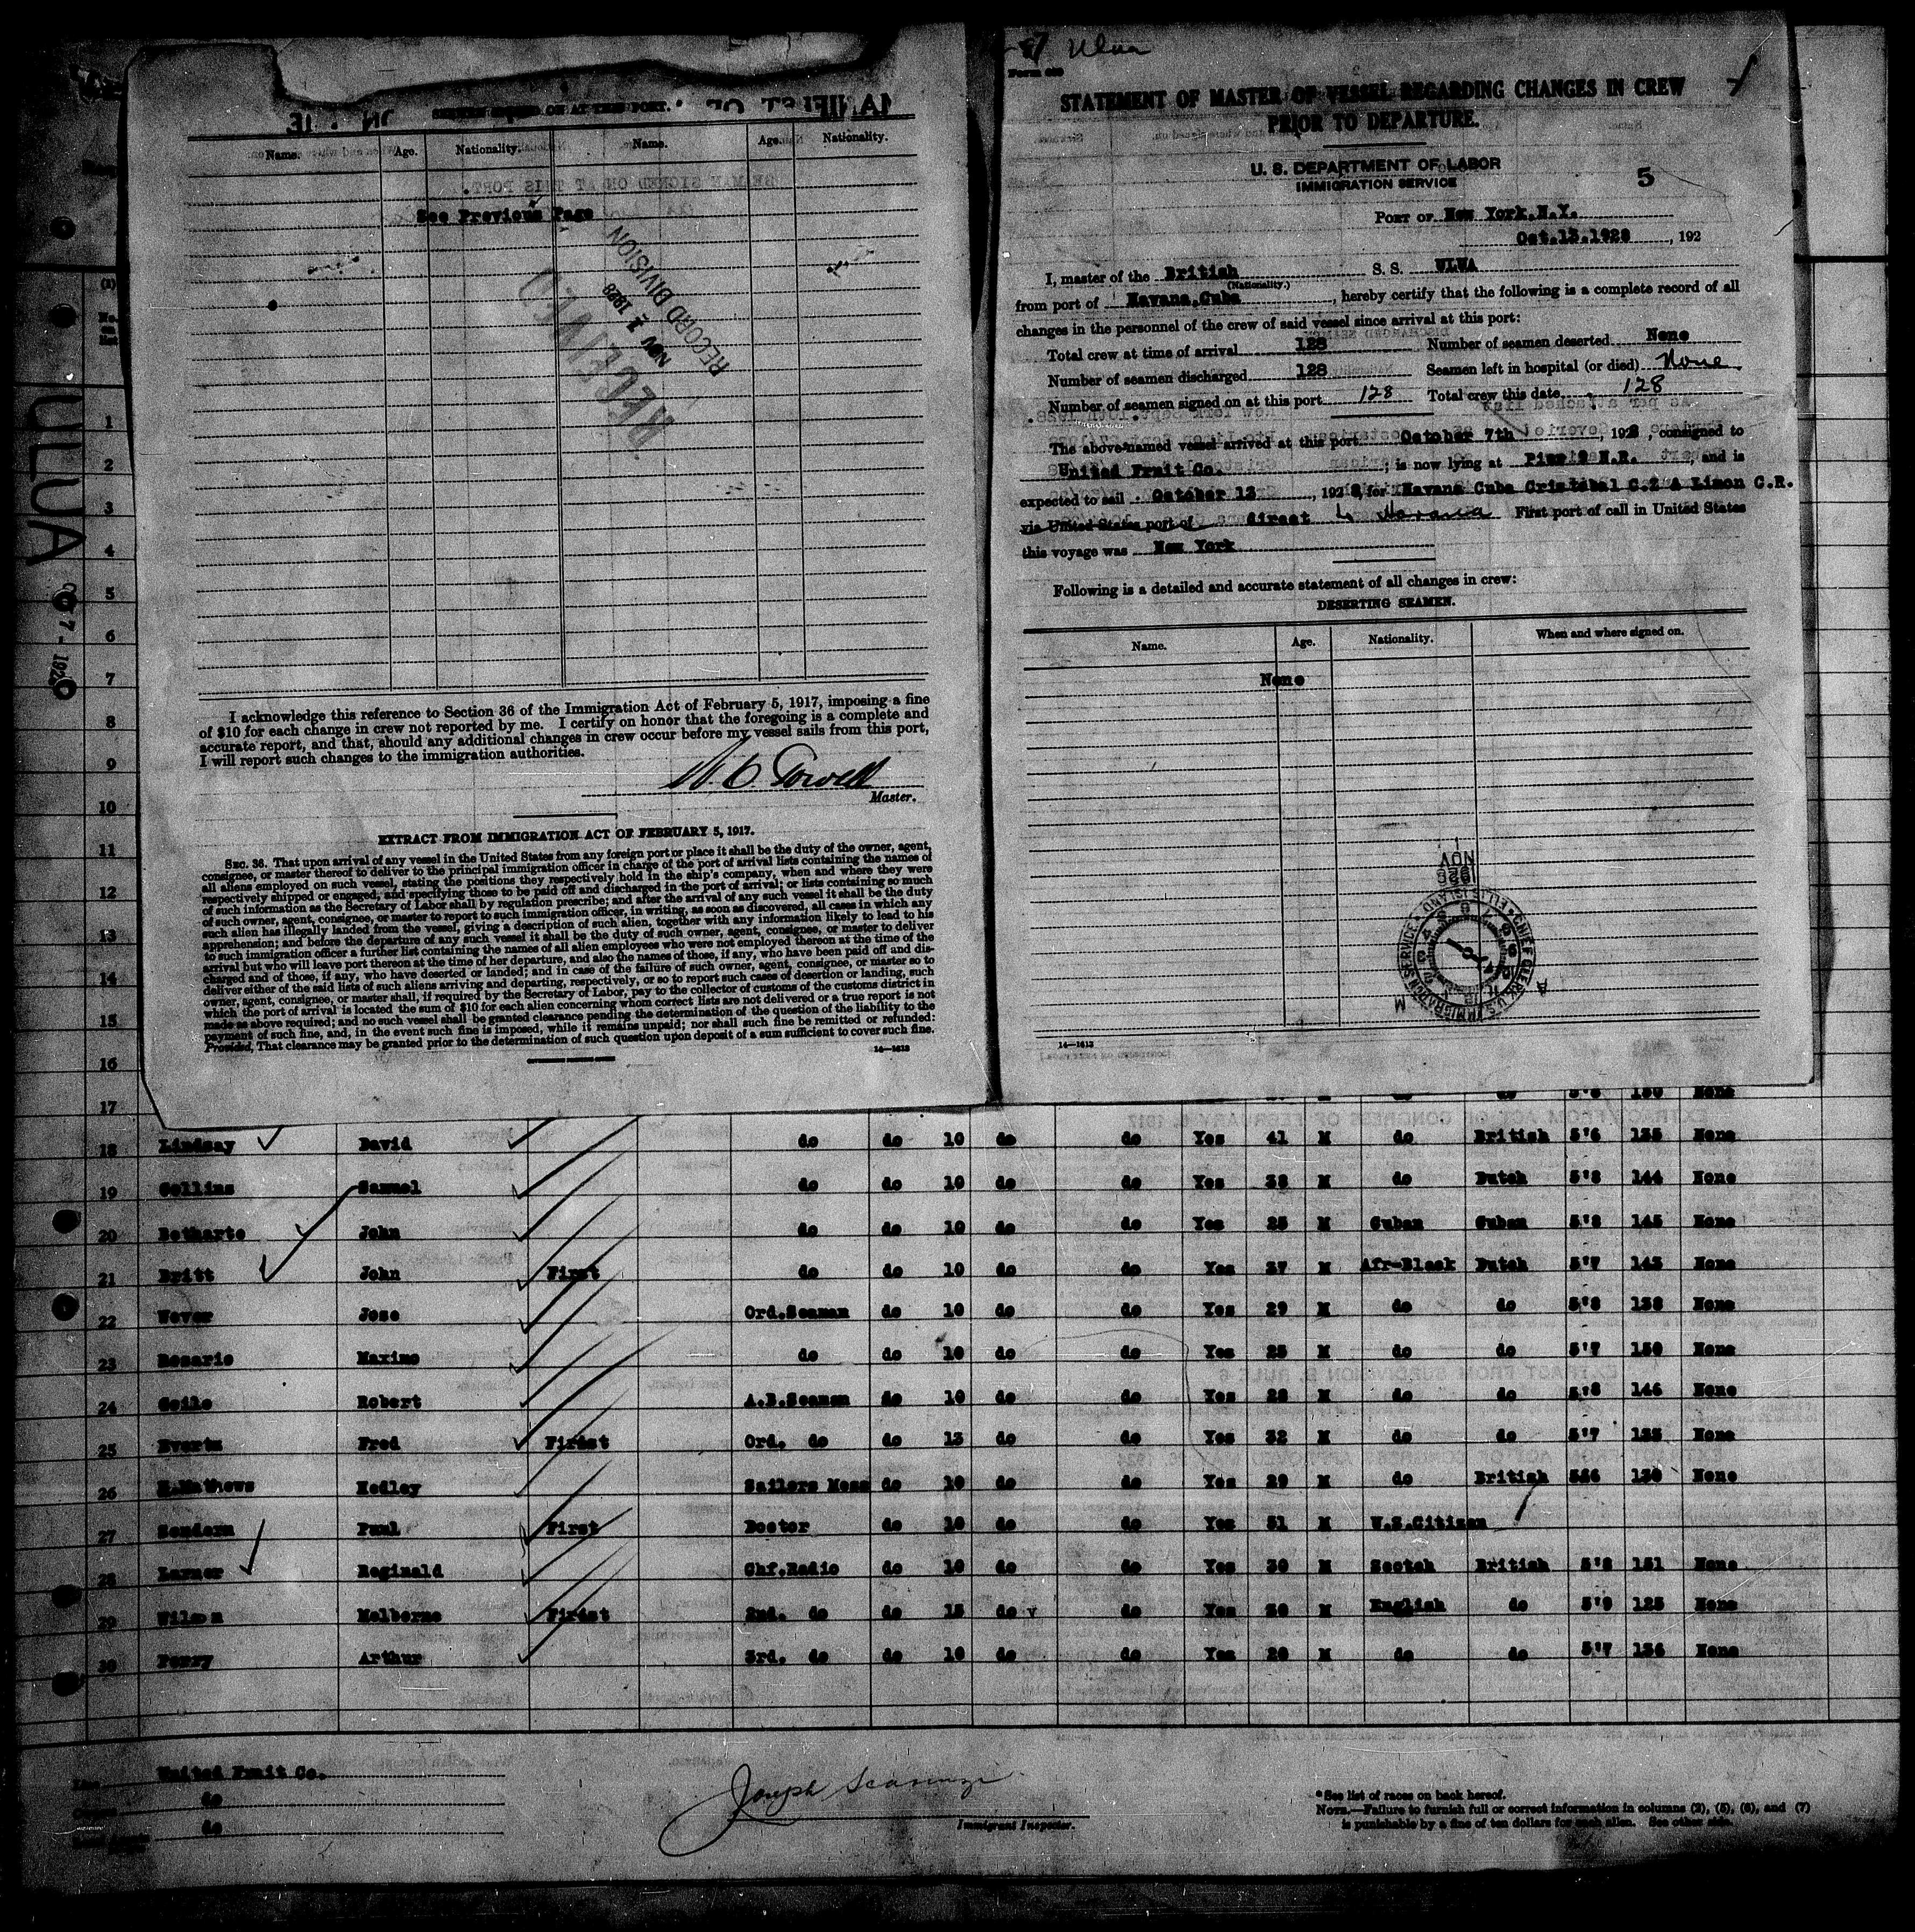 SEAMEN SIGNED ON AT THIS PORT.
Name. Age. Nationality. Name. Age. Nationality.
See Previous Page
RECEIVED
NOV 1 1928
RECORD DIVISION
I acknowledge this reference to Section 36 of the Immigration Act of February 5, 1917, imposing a fine
of $10 for each change in crew not reported by me. I certify on honor that the foregoing is a complete and
accurate report, and that, should any additional changes in crew occur before my vessel sails from this port,
I will report such changes to the immigration authorities.
Master.
EXTRACT FROM IMMIGRATION ACT OF FEBRUARY 5, 1917.
SEC. 36. That upon arrival of any vessel in the United States from any foreign port or place it shall be the duty of the owner, agent,
consignee, or master thereof to deliver to the principal immigration officer in charge of the port of arrival lists containing the names of
all aliens employed on such vessel, stating the positions they respectively hold in the ship's company, when and where they were
respectively shipped or engaged, and specifying those to be paid off and discharged in the port of arrival; or lists containing so much
of such information as the Secretary of Labor shall by regulation prescribe; and after the arrival of any such vessel it shall be the duty
of such owner, agent, consignee, or master to report to such immigration officer, in writing, as soon as discovered, all cases in which any
such alien has illegally landed from the vessel, giving a description of such alien, together with any information likely to lead to his
apprehension; and before the departure of any such vessel it shall be the duty of such owner, agent, consignee, or master to deliver
to such immigration officer a further list containing the names of all alien employees who were not employed thereon at the time of the
arrival but who will leave port thereon at the time of her departure, and also the names of those, if any, who have been paid off and dis-
charged and of those, if any, who have deserted or landed; and in case of the failure of such owner, agent, consignee, or master so to
deliver either of the said lists of such aliens arriving and departing, respectively, or so to report such cases of desertion or landing, such
owner, agent, consignee, or master shall, if required by the Secretary of Labor, pay to the collector of customs of the customs district in
which the port of arrival is located the sum of $10 for each alien concerning whom correct lists are not delivered or a true report is not
made as above required; and no such vessel shall be granted clearance pending the determination of the question of the liability to the
payment of such fine, and, in the event such fine is imposed, while it remains unpaid; nor shall such fine be remitted or refunded:
Provided, That clearance may be granted prior to the determination of such question upon deposit of a sum sufficient to cover such fine.
14—1613
Ulua
Form 689
STATEMENT OF MASTER OF VESSEL REGARDING CHANGES IN CREW
PRIOR TO DEPARTURE.
U. S. DEPARTMENT OF LABOR
IMMIGRATION SERVICE
5
PORT OF New York.N.Y.
Oct.13.1928, 192
I, master of the British S. S. ULUA
(Nationality.)
from port of Havana,Cuba, hereby certify that the following is a complete record of all
changes in the personnel of the crew of said vessel since arrival at this port:
Total crew at time of arrival 128 Number of seamen deserted None
Number of seamen discharged 128 Seamen left in hospital (or died) None
Number of seamen signed on at this port 128 Total crew this date 128
The above-named vessel arrived at this port October 7th, 1928, consigned to
United Fruit Co.; is now lying at Pier 9 N.R., and is
expected to sail October 13, 1928, for Havana Cuba Cristobal C.Z & Limon C.R.
via United States port of direct to Havana First port of call in United States
this voyage was New York
Following is a detailed and accurate statement of all changes in crew:
DESERTING SEAMEN.
Name. Age. Nationality. When and where signed on.
None
NOV
CHIEF CLERK U.S. IMMIGRATION SERVICE ELLIS ISLAND
14—1613
ULUA
OCT 7-1928
1
2
3
4
5
6
7
8
9
10
11
12
13
14
15
16
17
18 Lindsay David do do 10 do do Yes 41 M do British 5'6 135 None
19 Collins Samuel do do 10 do do Yes 38 M do Dutch 5'8 144 None
20 Betharte John do do 10 do do Yes 25 M Cuban Cuban 5'8 145 None
21 Britt John First do do 10 do do Yes 37 M Afr-Black Dutch 5'7 143 None
22 Wever Jose Ord.Seaman do 10 do do Yes 29 M do do 5'8 138 None
23 Rosario Maximo do do 10 do do Yes 25 M do do 5'7 150 None
24 Robert A.B.Seaman do 10 do do Yes 28 M do do 5'8 146 None
25 Evertz Fred Firdst Ord. do do 13 do do Yes 32 M do do 5'7 135 None
26 Hedley Sailors Mess do 10 do do Yes 29 M do British 5&6 130 None
27 Paul First Doctor do 10 do do Yes 51 M U.S.Citizen
28 Larner Reginald Chf.Radio do 10 do do Yes 30 M Scotch British 5'8 151 None
29 Wilson Melborne Firdst 2nd. do do 15 do do Yes 30 M English do 5'9 125 None
30 Perry Arthur 3rd. do do 10 do do Yes 20 M do do 5'7 136 None
Line United Fruit Co.
Owners do
Local Agents do
Joseph
Immigrant Inspector.
*See list of races on back hereof.
NOTE.—Failure to furnish full or correct information in columns (2), (5), (6), and (7)
is punishable by a fine of ten dollars for each alien. See other side.